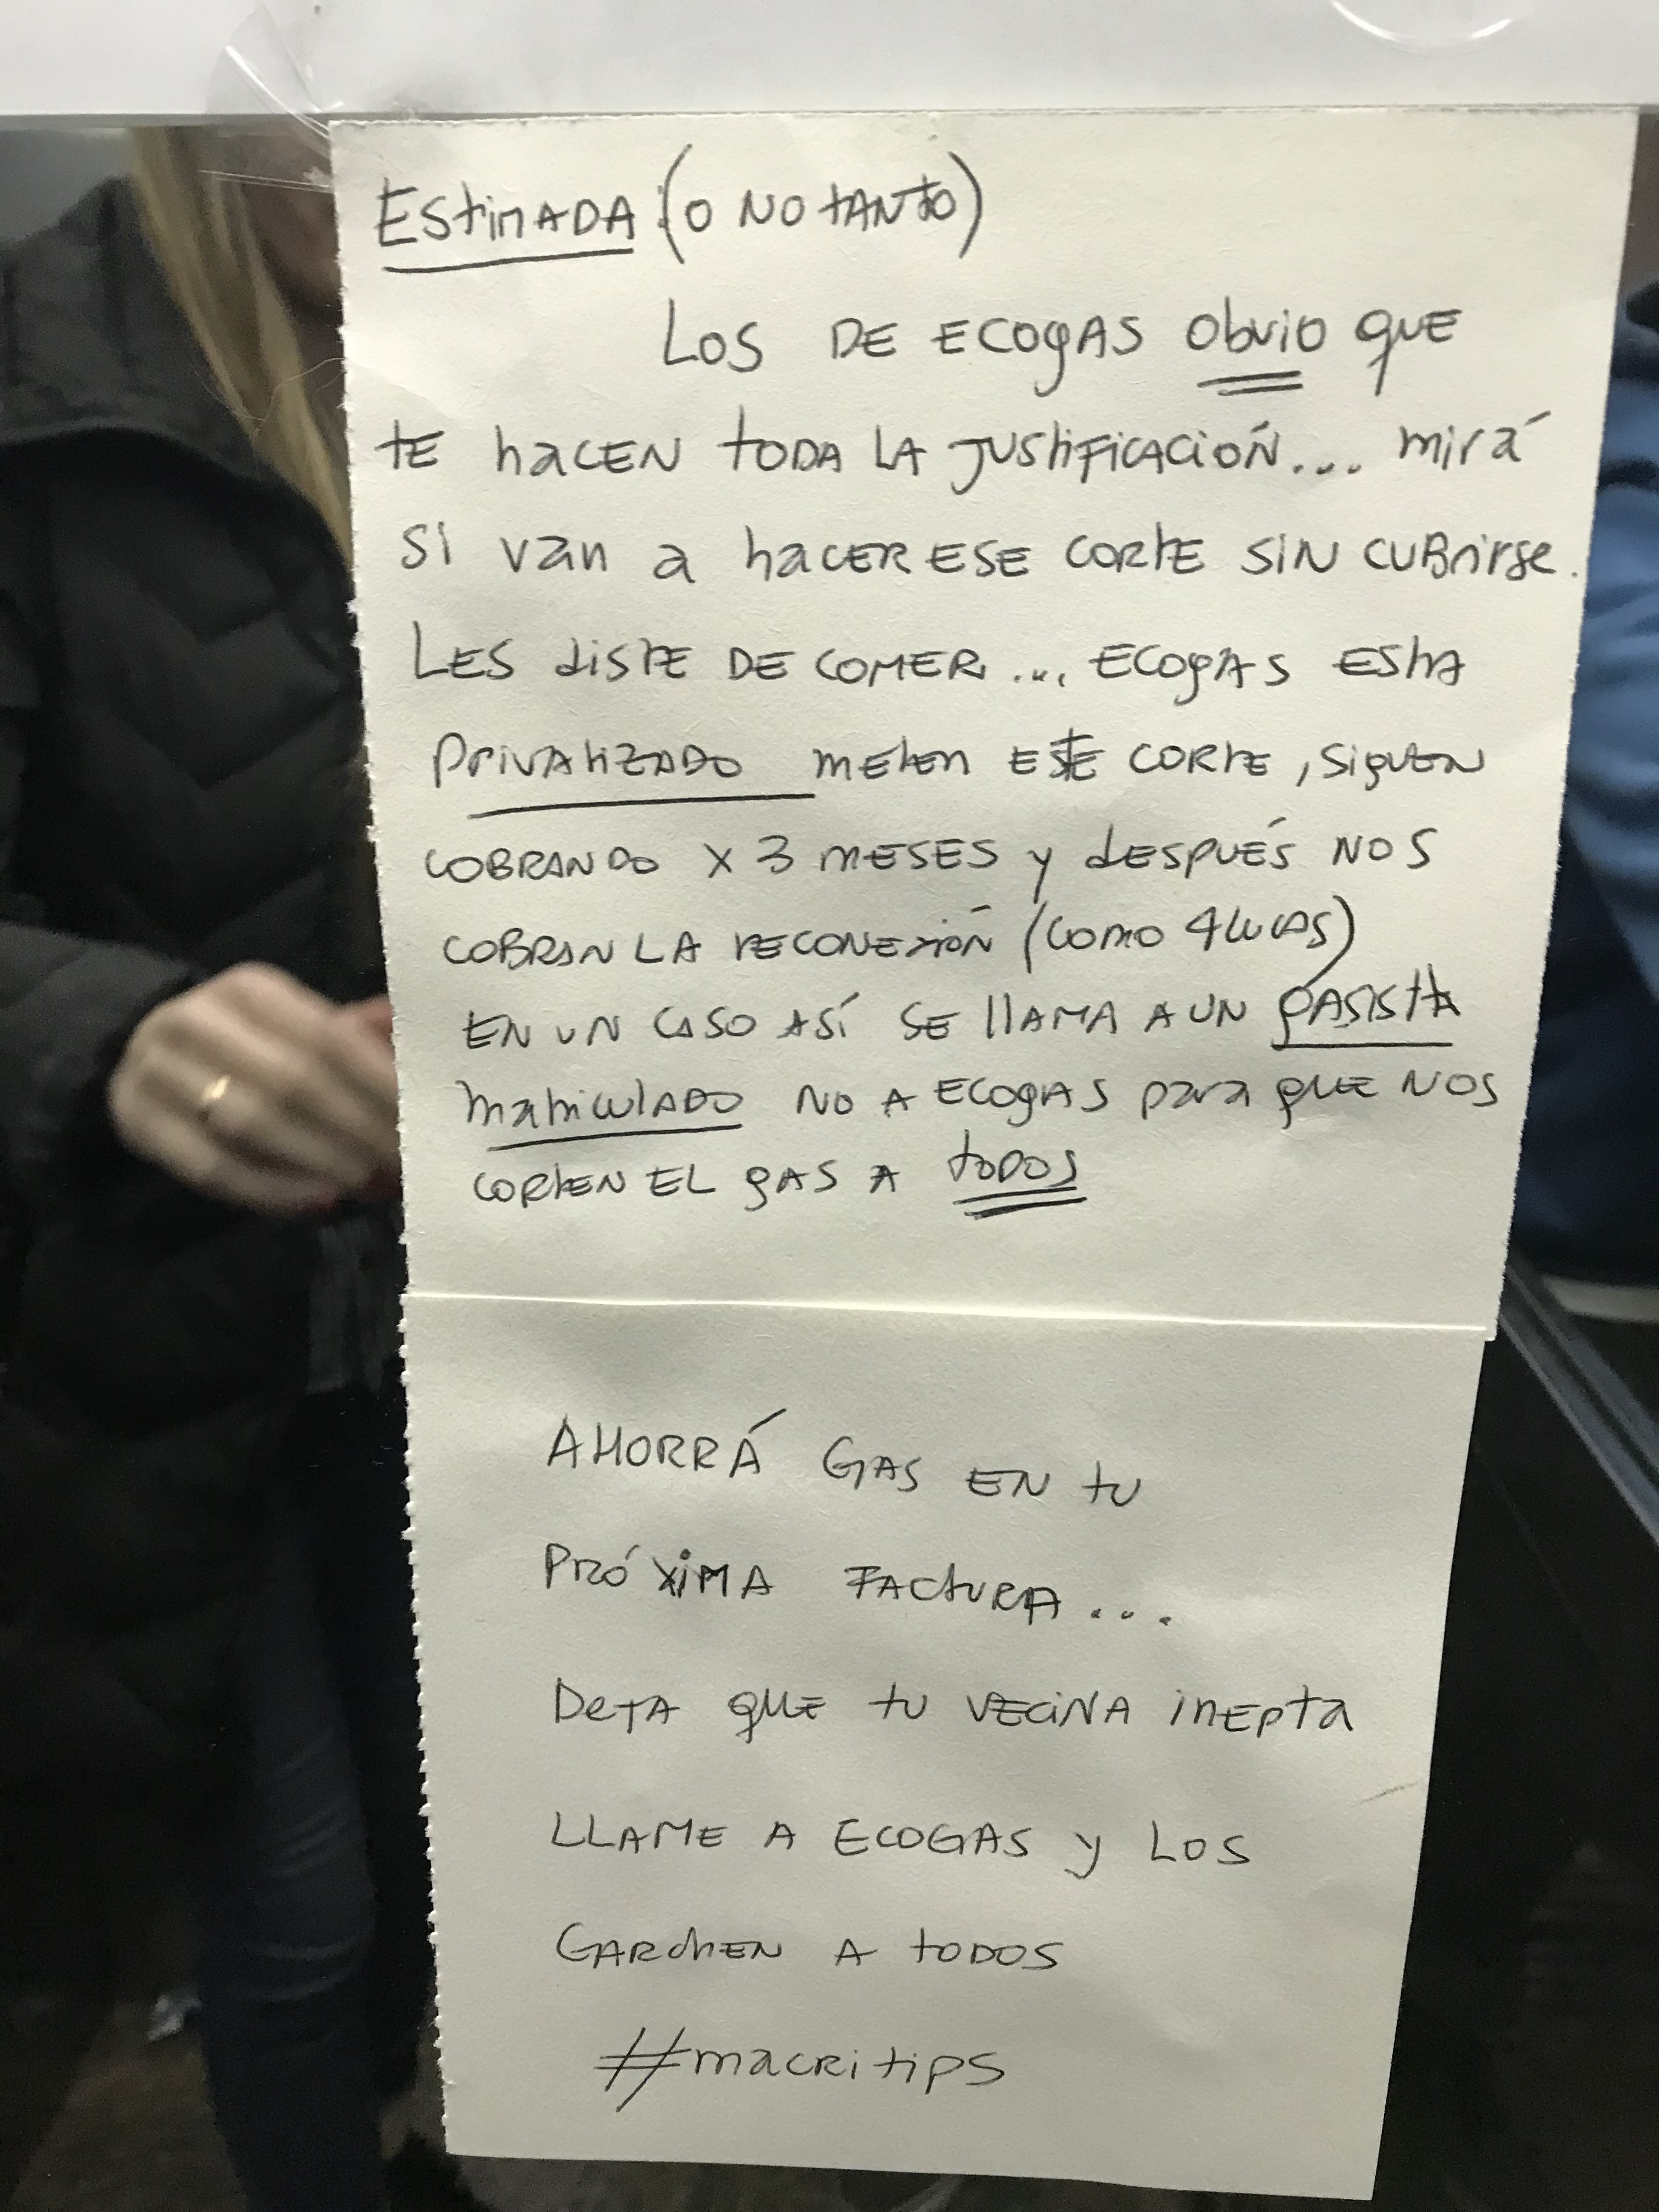 EstimADA: (O NO tANto)
Los DE ECOgAS obvio que
tE hacEN toDA LA justiFicación... mirá
si van a hacER ESE CORtE SIN CUBrirse.
LES distE DE COMER... ECOgAS EStA
privatizADO meten EStE CORtE, siguEN
COBRANDO x 3 mESES y dESPUÉS NOS
COBRAN LA rECONExión (como 4 lucas)
EN UN CASO ASÍ SE llAMA A UN gASistA
matriculADO NO A ECOgAS para quE NOS
CORtEN EL gAS A toDOS
AHORRÁ GAS EN tu
PRÓXiMA FActURA...
DeJA quE tu VECiNA inEpta
LLAME A ECOGAS y LOS
GARchEN A toDOS
#macritips